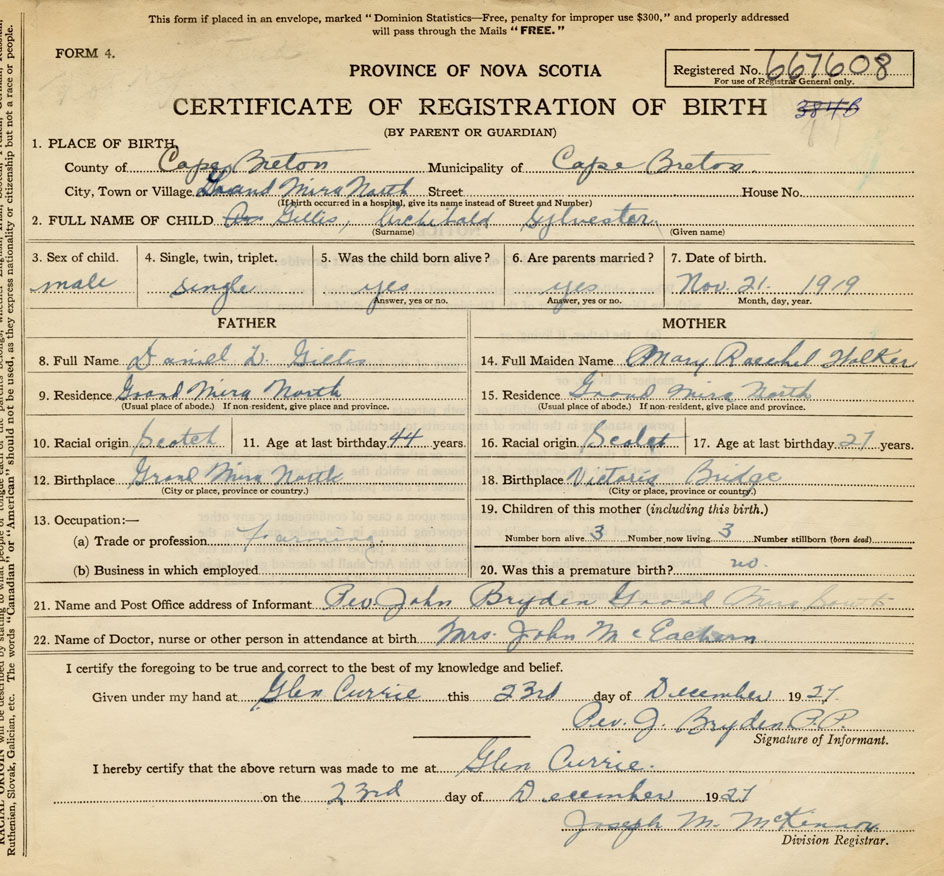 This form if placed in an envelope, marked " Dominion Statistics—Free, penalty for improper use $300," and properly addressed
will pass through the Mails "FREE."
FORM 4.
PROVINCE OF NOVA SCOTIA
Registered No. 667608
For use of Registrar General only.
CERTIFICATE OF REGISTRATION OF BIRTH 3846
(BY PARENT OR GUARDIAN)
1. PLACE OF BIRTH,
County of Cape Breton Municipality of Cape Breton
City, Town or Village Grand Mira North Street House No.
(If birth occurred in a hospital, give its name instead of Street and Number)
2. FULL NAME OF CHILD Gillis, Archibald Sylvester
(Surname) (Given name)
3. Sex of child. 4. Single, twin, triplet. 5. Was the child born alive? 6. Are parents married? 7. Date of birth.
male single yes yes Nov. 21 1919
Answer, yes or no. Answer, yes or no. Month, day, year.
FATHER MOTHER
8. Full Name Daniel D. Gillis 14. Full Maiden Name Mary Raechel Walker
9. Residence Grand Mira North 15. Residence Grand Mira North
(Usual place of abode.) If non-resident, give place and province. (Usual place of abode.) If non-resident, give place and province.
10. Racial origin Scotch 11. Age at last birthday 44 years. 16. Racial origin 17. Age at last birthday 27 years.
12. Birthplace Grand Mira North 18. Birthplace Victoria Bridge
(City or place, province or country.) (City or place, province or country.)
13. Occupation:— 19. Children of this mother (including this birth.)
(a) Trade or profession Farming Number born alive 3 Number now living 3 Number stillborn (born dead)
(b) Business in which employed 20. Was this a premature birth? no.
21. Name and Post Office address of Informant Rev John Bryden Grand Mira South
22. Name of Doctor, nurse or other person in attendance at birth. Mrs. John McEachern
I certify the foregoing to be true and correct to the best of my knowledge and belief.
Given under my hand at Glen Currie this 23rd day of December 1927
Rev. J. Bryden P.P.
Signature of Informant.
I hereby certify that the above return was made to me at Glen Currie.
on the 23rd day of December 1927
Joseph M. McKinnon
Division Registrar.
RACIAL ORIGIN will be described by stating to what people or tongue each of the parents belongs, whether English, Irish, Scotch, French, German, Russian,
Ruthenian, Slovak, Galician, etc. The words "Canadian" or "American" should not be used, as they express nationality or citizenship but not a race or people.